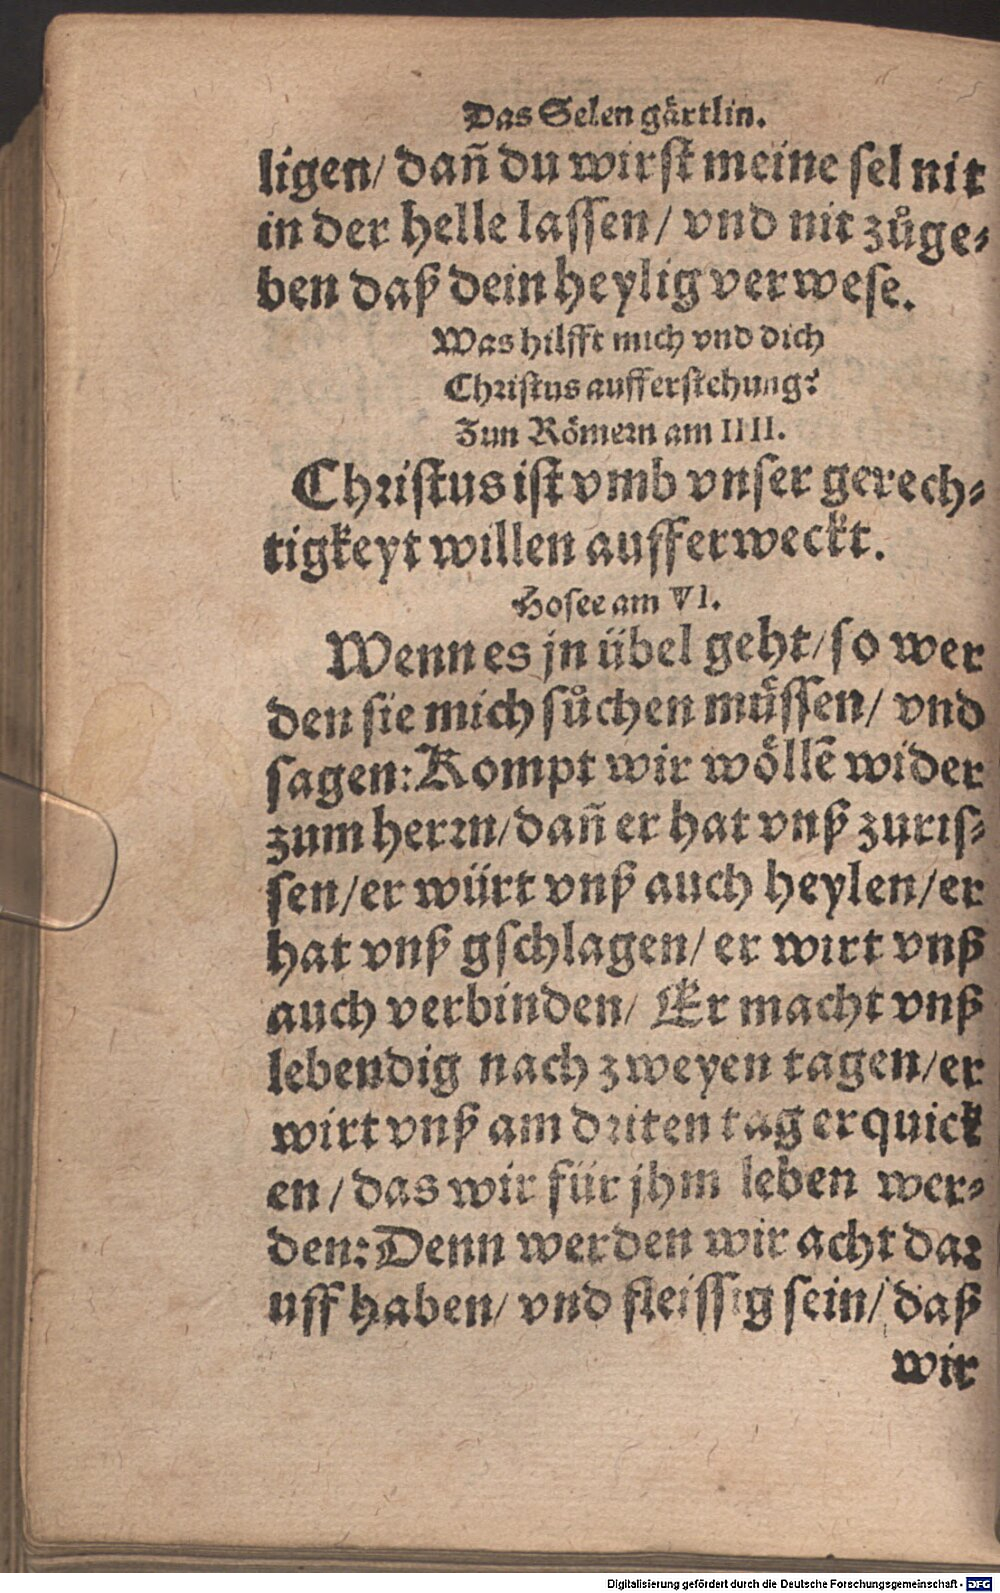 Das Selen gaͤrtlin.
ligen/ dañ du wirst meine sel nit
in der helle lassen/ vnd nit zůge⸗
ben daß dein heylig verwese.
Was hilfft mich vnd dich
Christus aufferstehung?
Zun Roͤmern am IIII.
Christus ist vmb vnser gerech⸗
tigkeyt willen aufferweckt.
Hosee am VI.
Wenn es jn übel geht/ so wer
den sie mich sůchen muͤssen/ vnd
sagen: Kompt wir woͤllē wider
zum herrn/ dañ er hat vnß zuris⸗
sen/ er würt vnß auch heylen/ er
hat vnß gschlagen/ er wirt vnß
auch verbinden/ Er macht vnß
lebendig nach zweyen tagen/ er
wirt vnß am driten tag erquick
en/ das wir für jhm leben wer⸗
den: Denn werden wir acht dar
uff haben/ vnd fleissig sein/ daß
wir
Digitalisierung gefördert durch die Deutsche Forschungsgemeinschaft - DFG